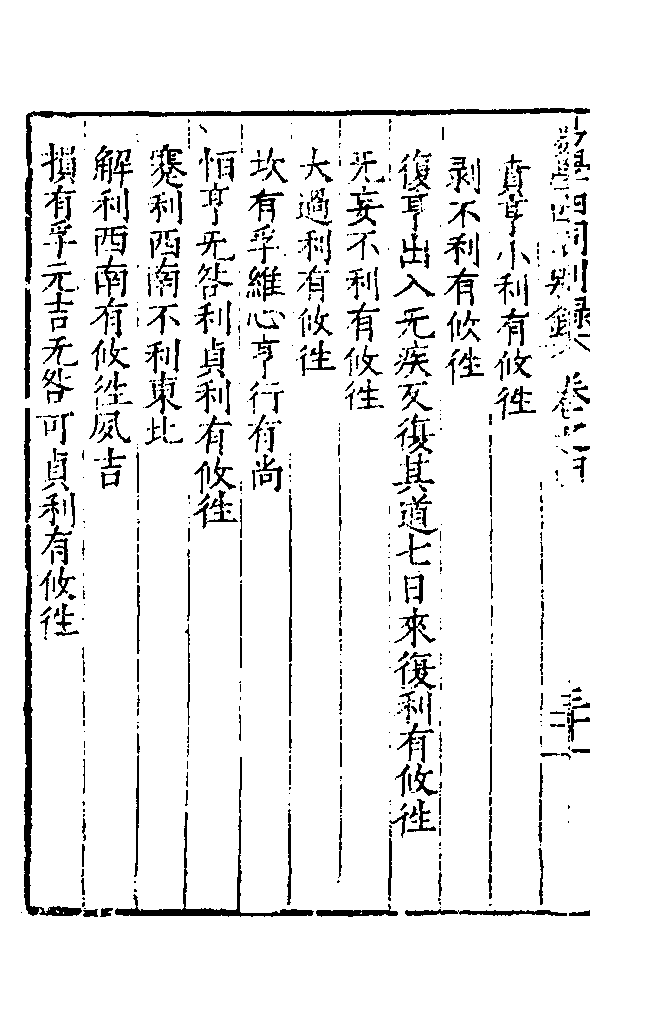 學四同別録 卷之
賁亨小利有攸徃
剥不利有攸徃
復亨出入无疾反復其道七日來復利有攸徃
无妄不利有攸徃
大過利有攸徃
坎有孚維心亨行有尚
恒亨无咎利貞利有攸徃
蹇利西南不利東北
解利西南有攸徃夙吉
損有孚元吉无咎可貞利有攸徃